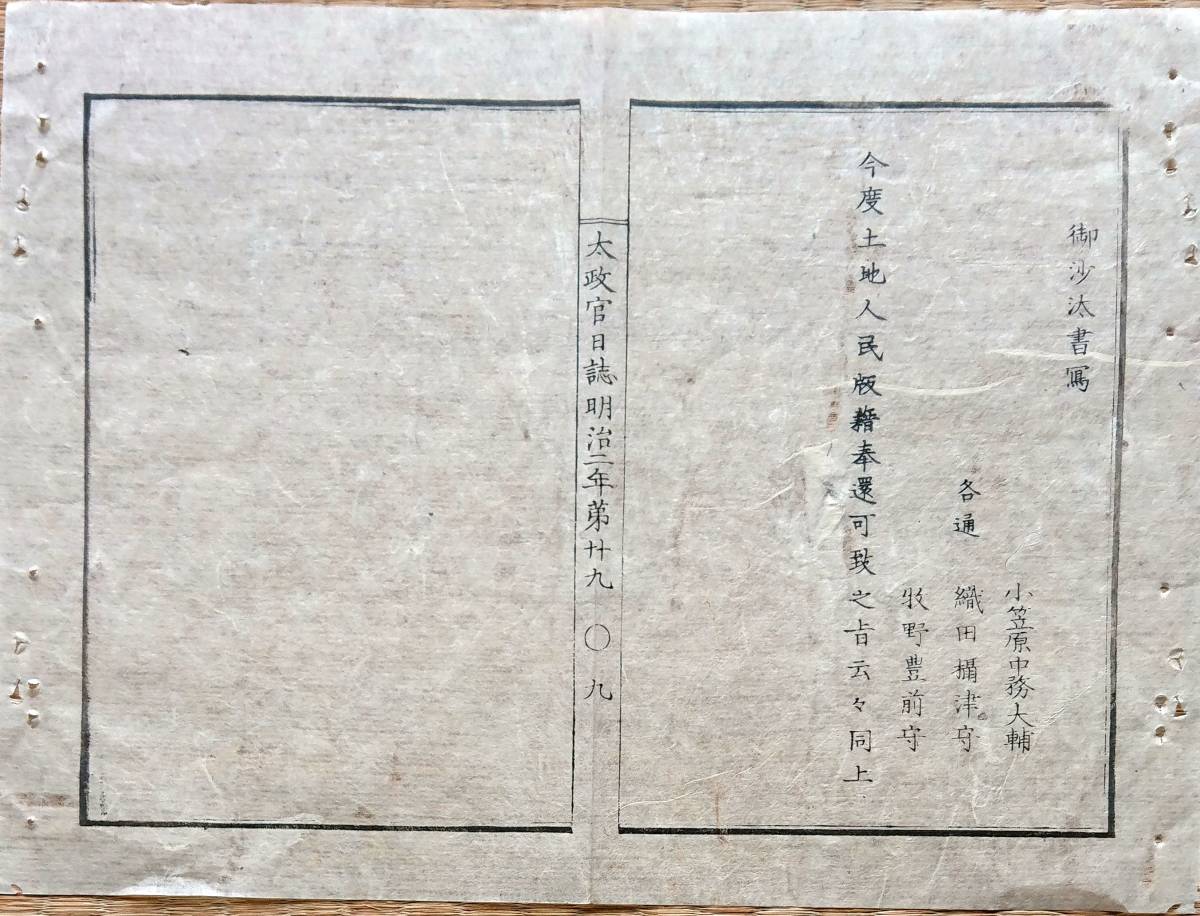 御沙汰書寫
小笠原中務大輔
各通　織田攝津守
牧野豊前守
今度土地人民版籍奉還可致之旨云々同上
太政官日誌明治二年第廿九　〇　九